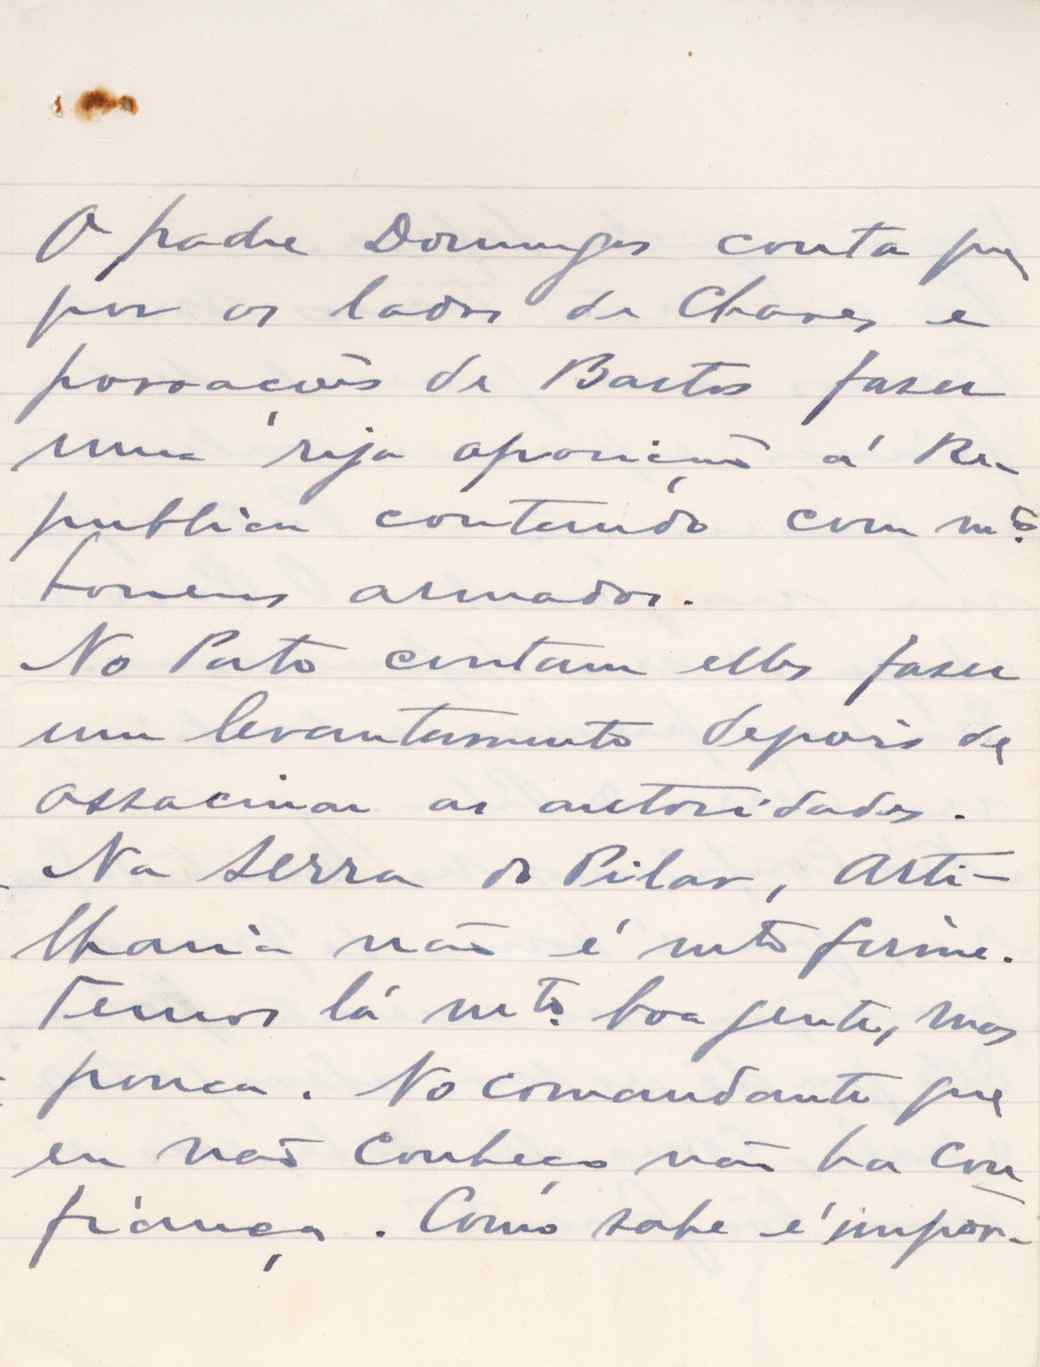 O padre Domingos conta que
por os lados de Chaves e
povoações de Bastos fazer
uma rija oposição á Re-
publica contando com mto.
homens armados.
No Porto contam elles fazer
um levantamento depois de
assacinar as autoridades.
Na Serra do Pilar, Arti-
lharia não é mto firme.
Temos lá mto. boa gente, mas
pouca. No comandante que
eu não conheço não ha con
fiança. Como sabe é impor-